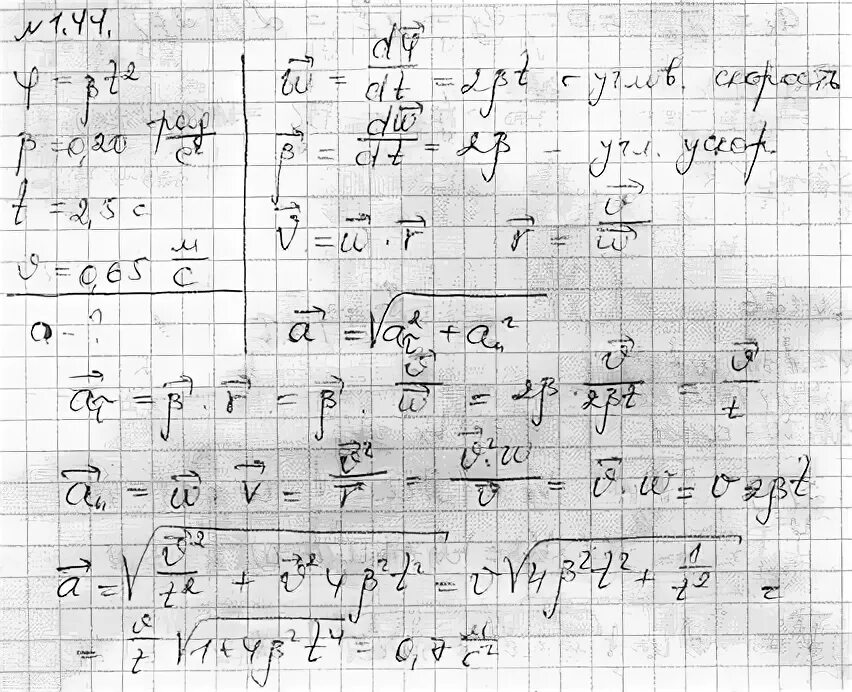 №1.44.
φ = βt²
β = 0,20 рад/с²
t = 2,5 с
v = 0,65 м/с
a - ?
w⃗ = dφ⃗/dt = 2βt - углов. скорость
β⃗ = dw⃗/dt = 2β - угл. ускор.
V⃗ = w⃗ · r⃗    r⃗ = v⃗/w⃗
a⃗ = √(a_τ² + a_n²)
a⃗_τ = β⃗ · r⃗ = β⃗ · v⃗/w⃗ = 2β · v⃗/2βt = v⃗/t
a⃗_n = w⃗ · V⃗ = v⃗²/r⃗ = v⃗²·w/v⃗ = v⃗ · w = v 2βt
a⃗ = √(v⃗²/t² + v⃗² 4β²t²) = v√(4β²t² + 1/t²) =
= v/t √(1+4β²t⁴) = 0,7 м/с²